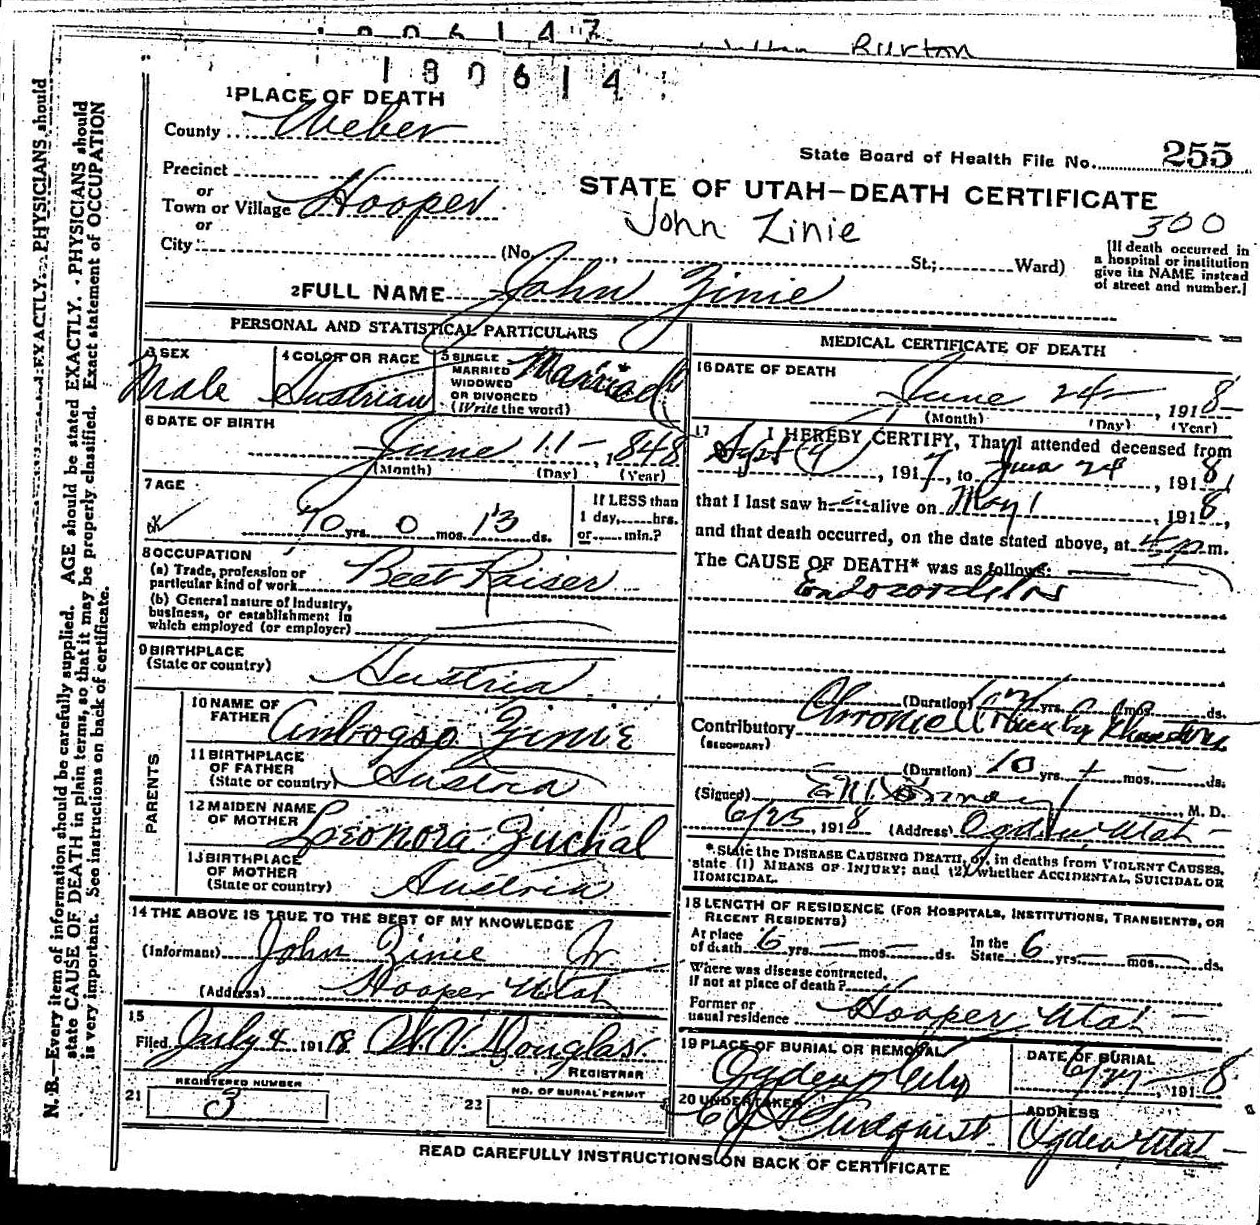 1806147
Burton
180614
1 PLACE OF DEATH
County Weber
State Board of Health File No. 255
Precinct
or
Town or Village Hooper
STATE OF UTAH—DEATH CERTIFICATE
John Zinie
300
or
City (No. St.; Ward)
[If death occurred in
a hospital or institution
give its NAME instead
of street and number.]
2 FULL NAME John Zinie
PERSONAL AND STATISTICAL PARTICULARS
3 SEX
Male
4 COLOR OR RACE
Austrian
5 SINGLE
MARRIED
WIDOWED
OR DIVORCED
(Write the word)
Married
6 DATE OF BIRTH
June 11 — , 1848
(Month) (Day) (Year)
7 AGE
70 yrs. 0 mos. 13 ds.
If LESS than
1 day, hrs.
or min.?
8 OCCUPATION
(a) Trade, profession or
particular kind of work Beet Raiser
(b) General nature of Industry,
business, or establishment in
which employed (or employer)
9 BIRTHPLACE
(State or country) Austria
PARENTS
10 NAME OF
FATHER Ambogso Zinie
11 BIRTHPLACE
OF FATHER
(State or country) Austria
12 MAIDEN NAME
OF MOTHER Leonora Zuchal
13 BIRTHPLACE
OF MOTHER
(State or country) Austria
14 THE ABOVE IS TRUE TO THE BEST OF MY KNOWLEDGE
(Informant) John Zinie Jr
(Address) Hooper Utah
15
Filed July 4 1918 W. V. Douglas
REGISTRAR
REGISTERED NUMBER
21 3
NO. OF BURIAL PERMIT
22
MEDICAL CERTIFICATE OF DEATH
16 DATE OF DEATH
June 24 — , 1918 —
(Month) (Day) (Year)
17 I HEREBY CERTIFY, That I attended deceased from
Sept 9 , 1917, to June 24 , 1918,
that I last saw him alive on May 1 1918,
and that death occurred, on the date stated above, at 4 p.m.
The CAUSE OF DEATH* was as follows:
Endocarditis
(Duration) yrs. mos. ds.
Contributory Chronic
(SECONDARY)
(Duration) 10 yrs. + mos. — ds.
(Signed) M. D.
6/25 , 1918 (Address) Ogden, Utah —
*State the DISEASE CAUSING DEATH, or, in deaths from VIOLENT CAUSES,
state (1) MEANS OF INJURY; and (2) whether ACCIDENTAL, SUICIDAL OR
HOMICIDAL.
18 LENGTH OF RESIDENCE (FOR HOSPITALS, INSTITUTIONS, TRANSIENTS, OR
RECENT RESIDENTS)
At place
of death 6 yrs. — mos. — ds. In the
State 6 yrs. — mos. — ds.
Where was disease contracted,
if not at place of death?
Former or
usual residence Hooper, Utah —
19 PLACE OF BURIAL OR REMOVAL
Ogden City
DATE OF BURIAL
6/27 — 1918
20 UNDERTAKER
Lindquist
ADDRESS
Ogden Utah —
READ CAREFULLY INSTRUCTIONS ON BACK OF CERTIFICATE
EXACTLY. PHYSICIANS should
N. B.—Every item of information should be carefully supplied. AGE should be stated EXACTLY. PHYSICIANS should
state CAUSE OF DEATH in plain terms, so that it may be properly classified. Exact statement of OCCUPATION
is very important. See instructions on back of certificate.